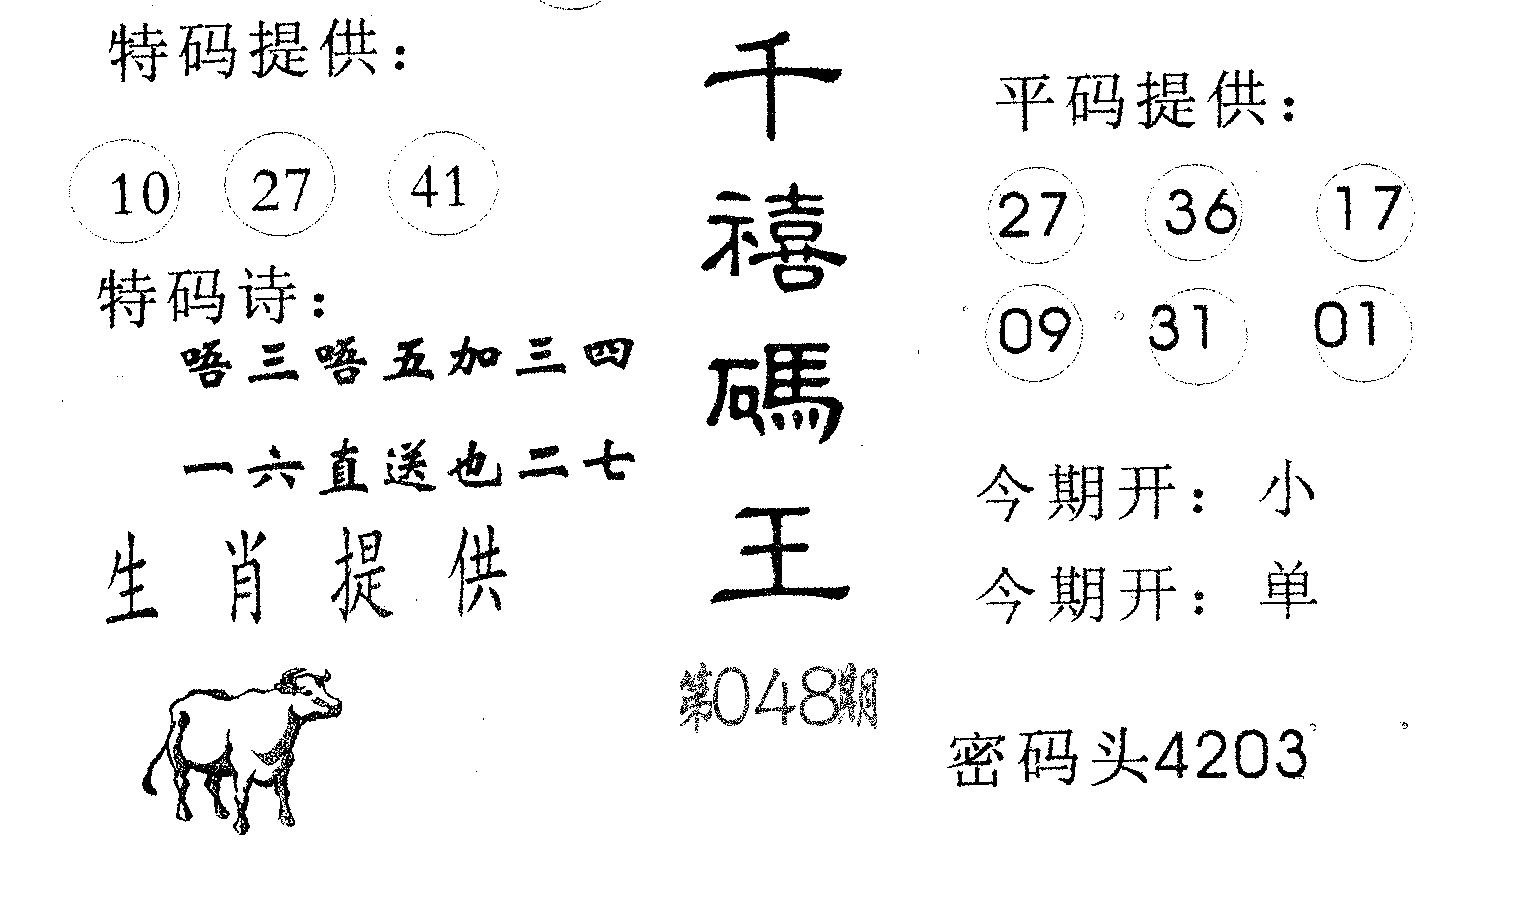 特码提供：
10 27 41
特码诗：
唔三唔五加三四
一六直送也二七
生肖提供
千禧碼王
第048期
平码提供：
27 36 17
09 31 01
今期开：小
今期开：单
密码头4203